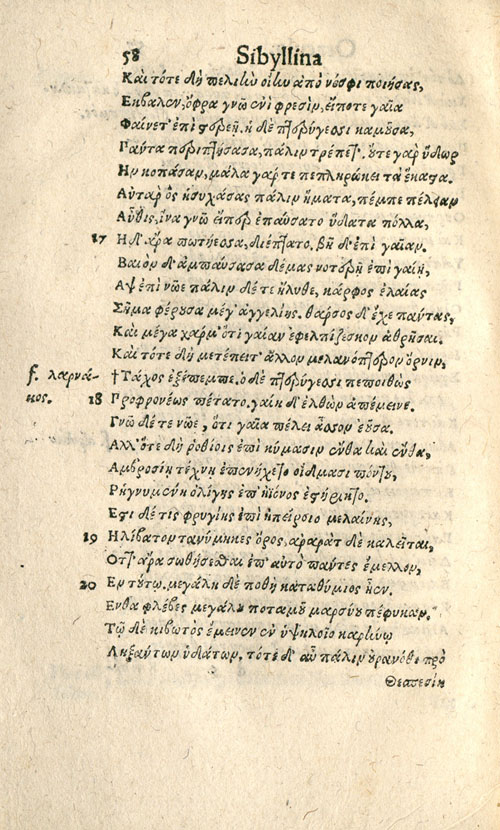 58 Sibyllina
Καὶ τότε δὴ πελιὴν οἰὴν ἀπὸ νόσφι ποιήσας,
Εκβαλεν, ὄφρα γνῷ ἐνὶ φρεσὶν, εἴποτε γαῖα
Φαίνετ' ἐπὶ στερεὴ. ἡ δὲ πτερύγεσσι καμοῦσα,
Πάντα περιπτήσασα, πάλιν τρέπετ'. οὔτε γὰρ ὕδωρ
Ην κοπάσαν, μάλα γάρ τε πεπληρώκει τὰ ἕκαστα.
Αὐτὰρ ὃς ἡσυχάσας πάλιν ἤματα, πέμπε πέλειαν
Αὖθις, ἵνα γνῷ εἴπερ ἐπαύσατο ὕδατα πολλα,
17 Η δ' ἄρα πωτήεσσα, διέπτατο. βῆ δ' ἐπὶ γαῖαν.
Βαιὸν δ' ἀμπαύσασα δέμας νοτερῇ ἐπὶ γαίῃ,
Αψ ἐπὶ νῶε πάλιν δέ τε ἤλυθε, κάρφος ἐλαίας
Σῆμα φέρουσα μέγ' ἀγγελίης. θάρσος δ' ἔχε πάντας,
Καὶ μέγα χάρμ' ὅτι γαῖαν ἐφελπίζεσκον ἀθρῆσαι.
Καὶ τότε δὴ μετέπειτ' ἄλλον μελανόπτερον ὄρνιν,
f. λαρνά- † Τάχος ἐξέπεμπε. ὁ δὲ πτερύγεσσι πεποιθὼς
κος. 18 Προφρονέως πέτατο. γαίῃ δ' ἐλθὼν ἀπέμεινε.
Γνῶ δέ τε νῶε, ὅτι γαῖα πέλει ἆσσον ἐοῦσα.
Αλλ' ὅτε δὴ ῥοθίοις ἐπὶ κύμασιν ἔνθα καὶ ἔνθα,
Αμβροσίη τέχνη ἐπενήχετο οἴδμασι πόντου,
Ρήγνυμένη ὀλίγης ἐπ' ἠϊόνος ἐστήρικτο.
Εστι δέ τις φρυγίης ἐπὶ ἠπείροιο μελαίνης,
19 Ηλίβατον τανύμηκες ὄρος, ἀραρὰτ δὲ καλεῖται,
Οττ' ἄρα σωθήσεσθαι ἐπ' αὐτὸ πάντες ἔμελλον,
20 Εν τούτῳ. μεγάλη δὲ ποθὴ καταθύμιος ἦεν.
Ενθα φλέβες μεγάλου ποταμοῦ μαρσύου πέφυκαν.
Τῷ δὲ κιβωτὸς ἔμεινεν ἐν ὑψηλοῖο καρήνῳ
Ληξάντων ὑδάτων, τότε δ' αὖ πάλιν οὐρανόθι πρὸ
Θεσπεσίη